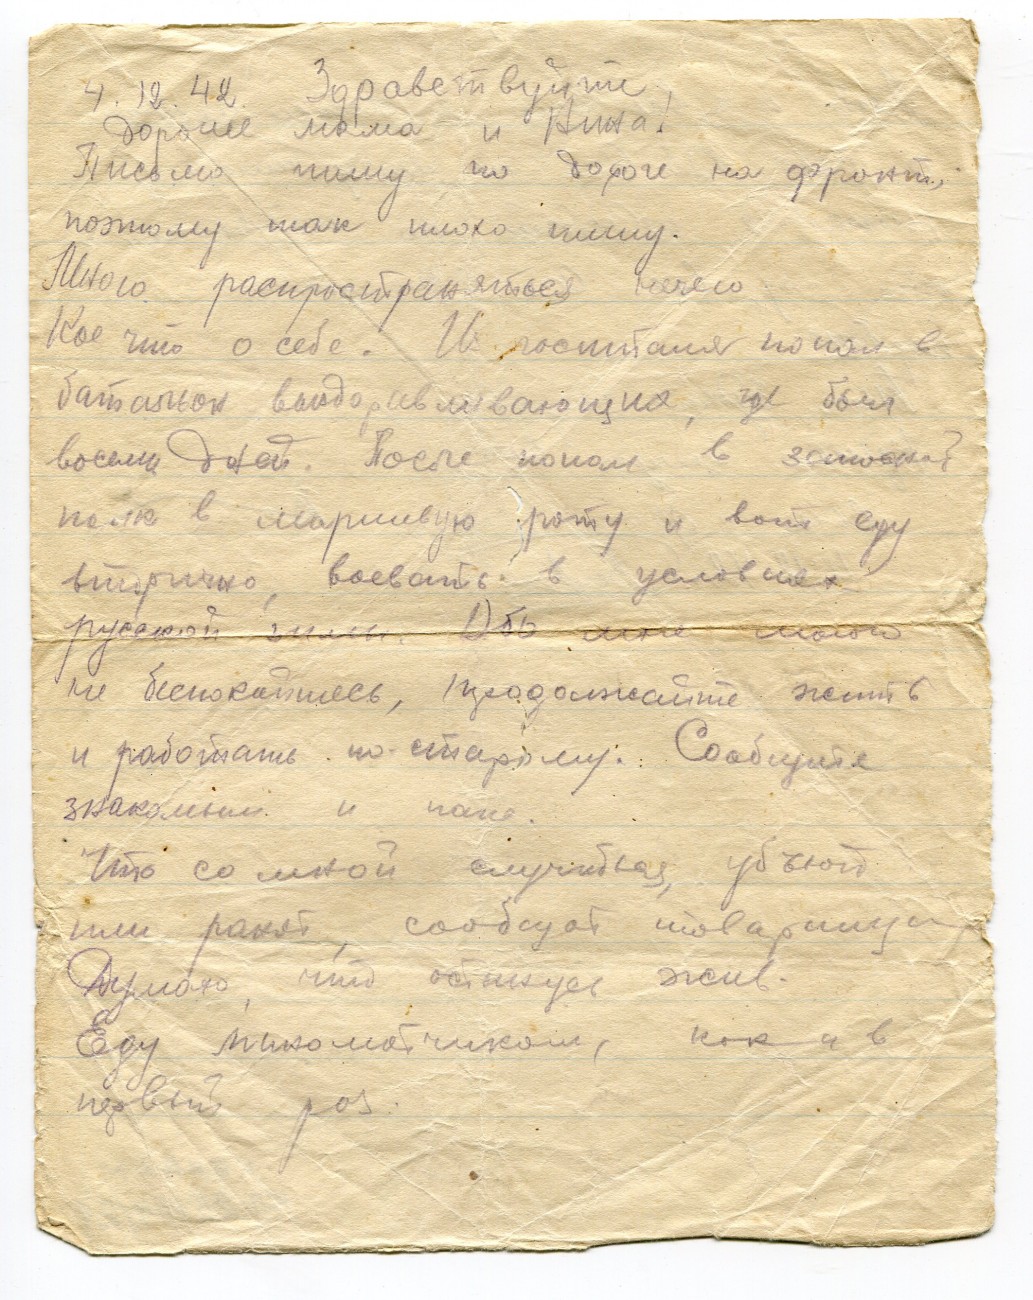 4.12.42. Здравствуйте,
дорогие мама и Нина!
Письмо пишу по дороге на фронт,
поэтому так плохо пишу.
Много распространяться нечего
Кое что о себе. Из госпиталя попал в
батальон выздоравливающих, где был
восемь дней. После попал в запасной
полк в маршевую роту и вот еду
вторично, воевать в условиях
русской зимы. Обо мне много
не беспокойтесь, продолжайте жить
и работать по-старому. Сообщите
знакомым и папе.
Что со мной случиться, убъют
или ранят, сообщат товарищи
Думаю, что останусь жив.
Еду минометчиком, как и в
первый раз.